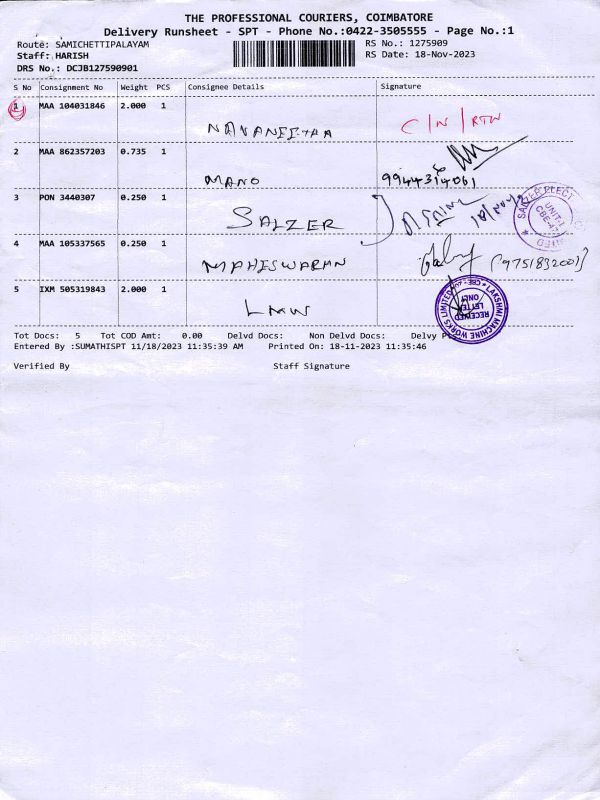 THE PROFESSIONAL COURIERS, COIMBATORE
Delivery Runsheet - SPT - Phone No.:0422-3505555 - Page No.:1
Route: SAMICHETTIPALAYAM
RS No.: 1275909
Staff: HARISH
RS Date: 18-Nov-2023
DRS No.: DCJB127590901
S No Consignment No Weight PCS Consignee Details Signature
1 MAA 104031846 2.000 1
NAVANEETHA C/N/RTN
2 MAA 862357203 0.735 1
MANO 9944314061
3 PON 3440307 0.250 1
SALZER
SALZER ELECT
UNIT-I
4 MAA 105337565 0.250 1
MAHESWARAN (9751832001)
5 IXM 505319843 2.000 1
LMW
LAKSHMI MACHINE WORKS LIMITED
RECEIVED
LETTER
ONLY
Tot Docs: 5 Tot COD Amt: 0.00 Delvd Docs: Non Delvd Docs: Delvy
Entered By :SUMATHISPT 11/18/2023 11:35:39 AM Printed On: 18-11-2023 11:35:46
Verified By Staff Signature